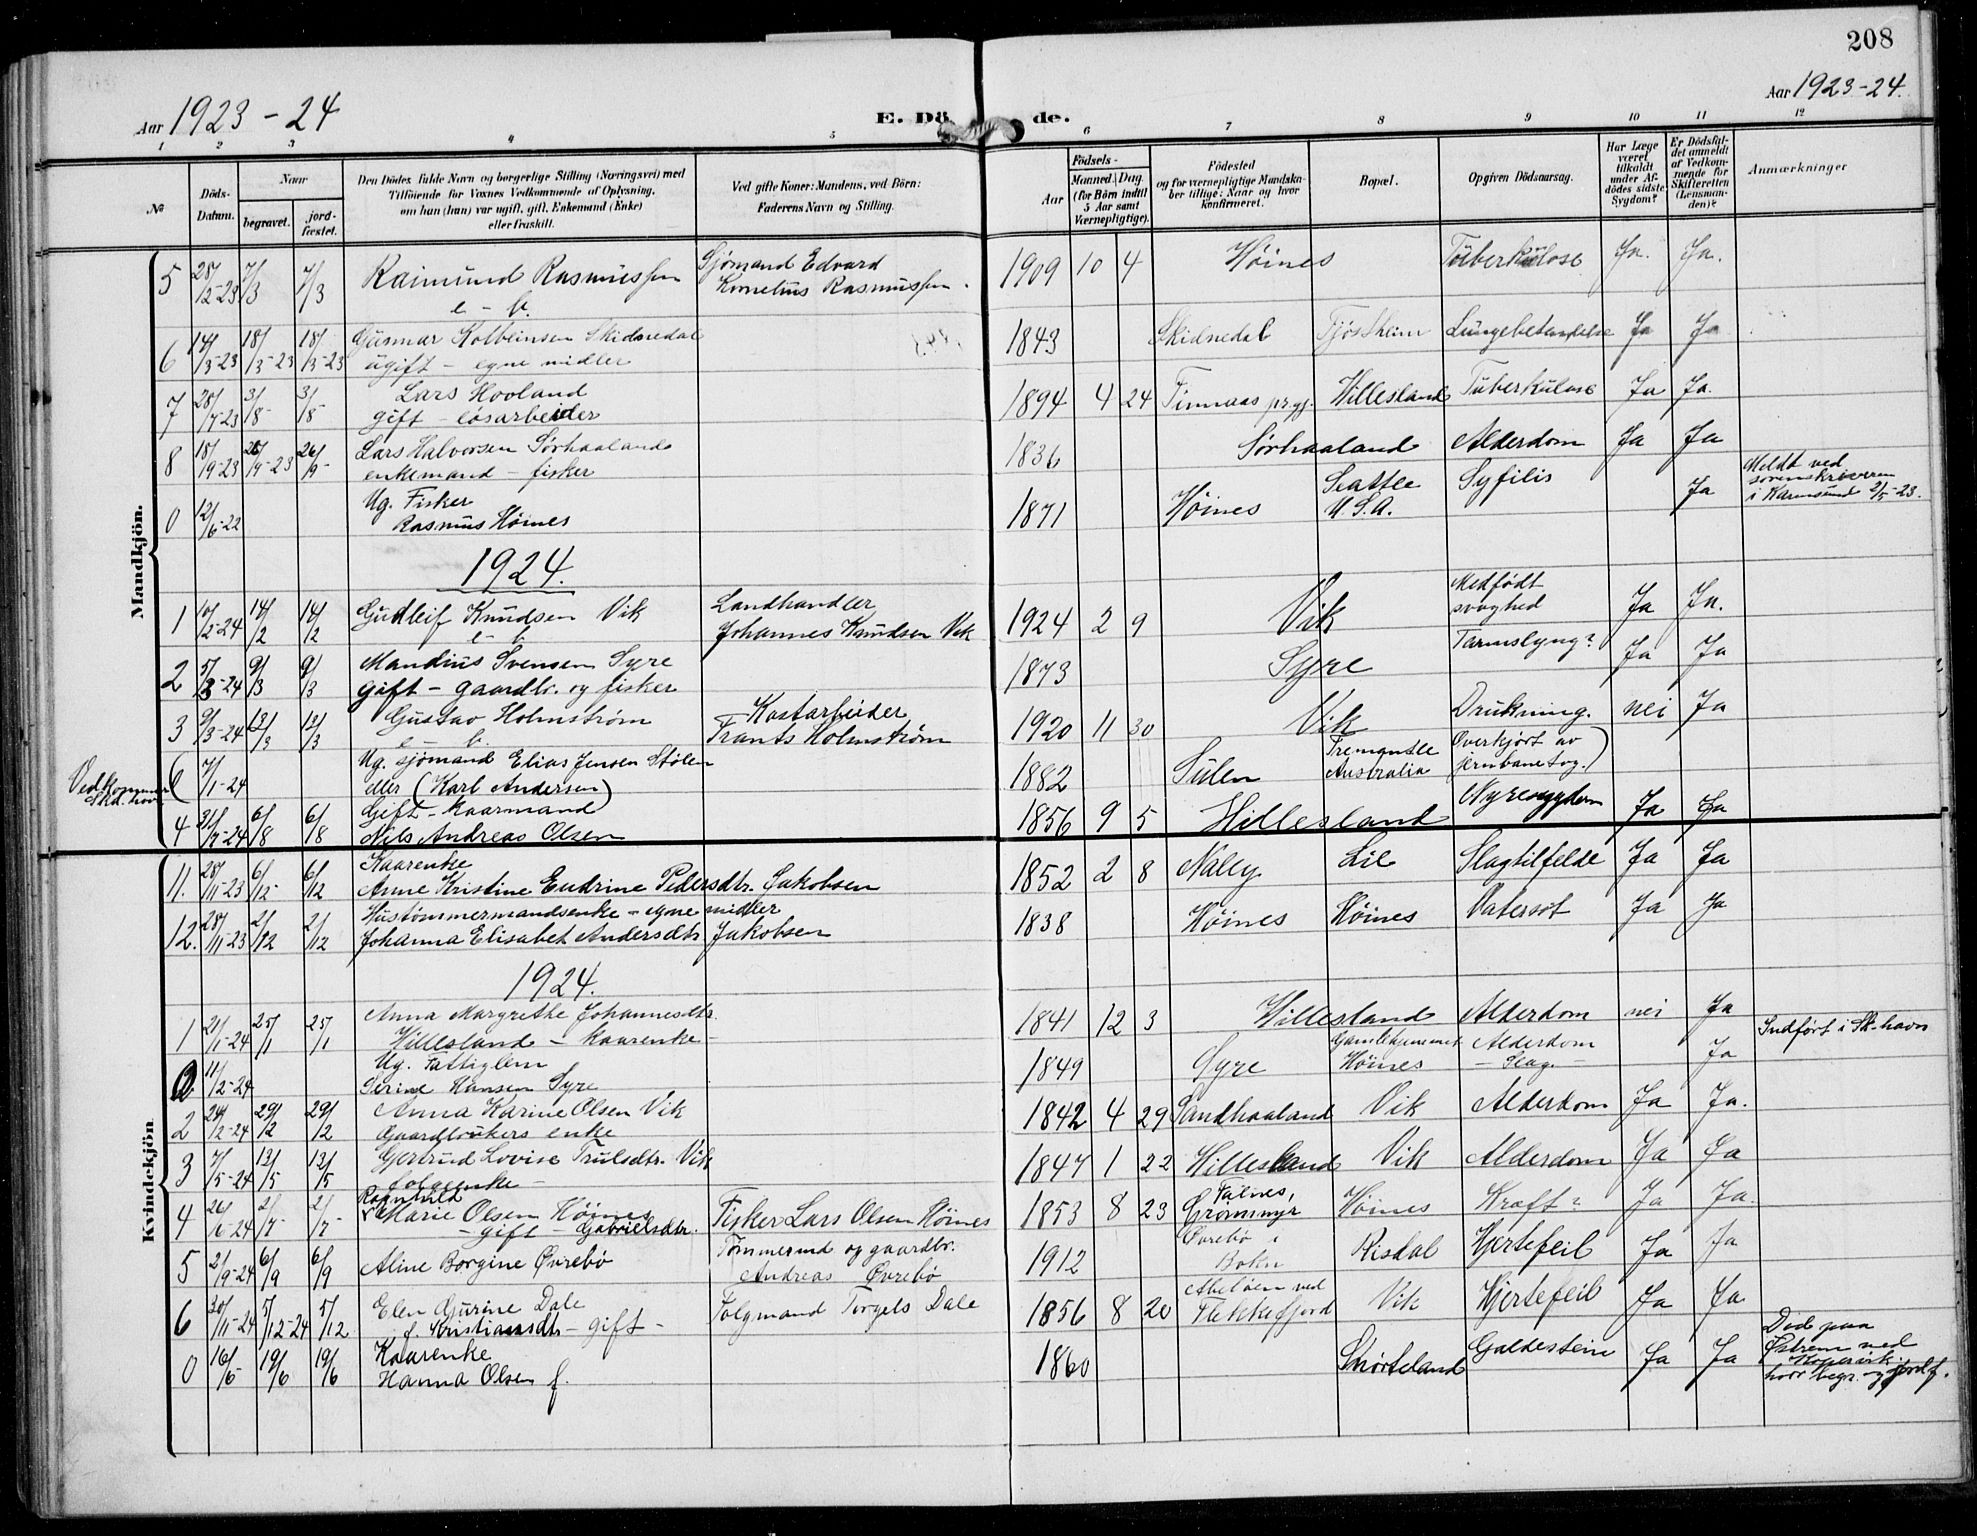 208
Aar 1923-24
E. Dö de.
Aar 1923-24.
1 2 3 4 5 6 7 8 9 10 11 12
No
Döds-Datum.
Naar
begravet.
jord-fæstet.
Den Dödes fulde Navn og borgerlige Stilling (Næringsvei) med
Tilföiende for Voxnes Vedkommende af Oplysning,
om han (hun) var ugift, gift, Enkemand (Enke)
eller fraskilt.
Ved gifte Koner: Mandens, ved Börn:
Faderens Navn og Stilling.
Födsels-
Aar
Maaned. Dag.
(for Börn indtil
5 Aar samt
Værnepligtige).
Födested
og for værnepligtige Mandska-
ber tillige: Naar og hvor
konfirmeret.
Bopæl.
Opgiven Dödsaarsag.
Har Læge
været
tilkaldt
under Af-
dödes sidste
Sygdom?
Er Dödsfal-
det anmeldt
af Vedkom-
mende for
Skifteretten
(Lensman-
den)?
Anmærkninger
Mandkjön.
5 28/12-23 7/3 7/3 Raimund Rasmussen Sjömand Edvard 1909 10 4 Höines Tuberkulose Ja. Ja.
e - b. Kornelius Rasmussen.
6 14/3-23 18/3-23 18/3-23 Gunnar Kolbeinsen Skidnedal 1843 Skidnedal Tjösheim Lungebetændelse Ja Ja
ugift - egne midler
7 28/7-23 3/8- 3/8- Lars Hovland 1894 4 24 Finnaas prgj. Hillesland Tuberkulose Ja Ja.
gift - løsarbeider
8 18/9-23 26/9-23 26/9- Lars Halvorsen Sørhaaland 1836 Sørhaaland Alderdom Ja Ja
enkemand - fisker
0 12/6-22 Ug. Fisker 1871 Höines Seattle U.S.A. Syfilis Ja Meldt ved
Rasmus Höines sorenskriveren
i Karmsund 2/5-23.
1924.
1 10/2-24 14/2 14/2 Gudleif Knudsen Vik Landhandler 1924 2 9 Vik Medfödt svaghed Ja Ja.
e - b Johannes Knudsen Vik
2 5/3-24 9/3 9/3 Mandius Svensen Syre 1873 Syre Tarmslyng? Ja Ja
gift - gaardbr. og fisker
3 9/3-24 13/3 13/3 Gustav Holmström Kastarbeider 1920 11 30 Vik Drukning. nei Ja
e - b. Frants Holmström
Vedkommer Skd. havn
(0 7/1-24 Ug. sjömand Elias Jensen Stölen 1882 Sulen Fremantle Australia Overkjört av jernbanetog.)
eller (Karl Andersen)
4 31/7-24 6/8 6/8 Gift - kaarmand 1856 9 5 Hillesland Nyresygdom Ja Ja
Nils Andreas Olsen
Kvindekjön
11. 28/11-23 6/12- 6/12 Kaarenke 1852 2 8 Nalley Lie Slagtilfelde Ja Ja
Anne Kristine Eudrine Pedersdtr. Jakobsen
12. 28/11-23 2/12 2/12 Hustømmermandsenke - egne midler 1838 Höines Höines Vatersot Ja Ja
Johanna Elisabet Andersdtr Jakobsen
1924.
1 21/1-24 25/1 25/1 Anna Margrethe Johannesdtr. 1841 12 3 Hillesland Alderdom nei Ja
Hillesland - kaarenke
0 11/2-24 Ug. Fattiglem 1849 Syre Gamlehjemmet Höines Alderdom - Slag - Ja Indfört i Sk-havn
Serine Hansen Syre
2 24/2-24 29/2 29/2 Anna Karine Olsen Vik 1842 4 29 Sandhaaland Vik Alderdom Ja Ja.
Gaardbrukers enke
3 7/5-24 13/5 13/5 Gjertrud Lovise Trulsdtr. Vik 1847 1 22 Hillesland Vik Alderdom Ja Ja
4 26/6-24 2/7- 2/7- Ragnhild Marie Olsen Höines Fisker Lars Olsen Höines 1853 8 23 Falnes, Grönnmyr Höines Kræft? Ja Ja.
- gift - Gabrielsdtr.
5 2/9-24 6/9 6/9 Aline Borgine Øvrebø Tömmermd og gaardbr. 1912 Øvrebø i Bokn Risdal Hjertefeil Ja Ja
Andreas Øvrebø
6 30/11-24 5/12-24 5/12 Elen Gurine Dale Folgmand Torgels Dale 1856 8 20 Abelöen ved Flekkefjord Vik Hjertefeil Ja Ja
f. Kristiansdtr - gift -
0 16/6- 19/6 19/6 Kaarenke 1860 Snörteland Galdestein Ja Ja Död paa
Hanna Olsen f. Østrem ved
Kopervik.
hvor begr. og jordf.